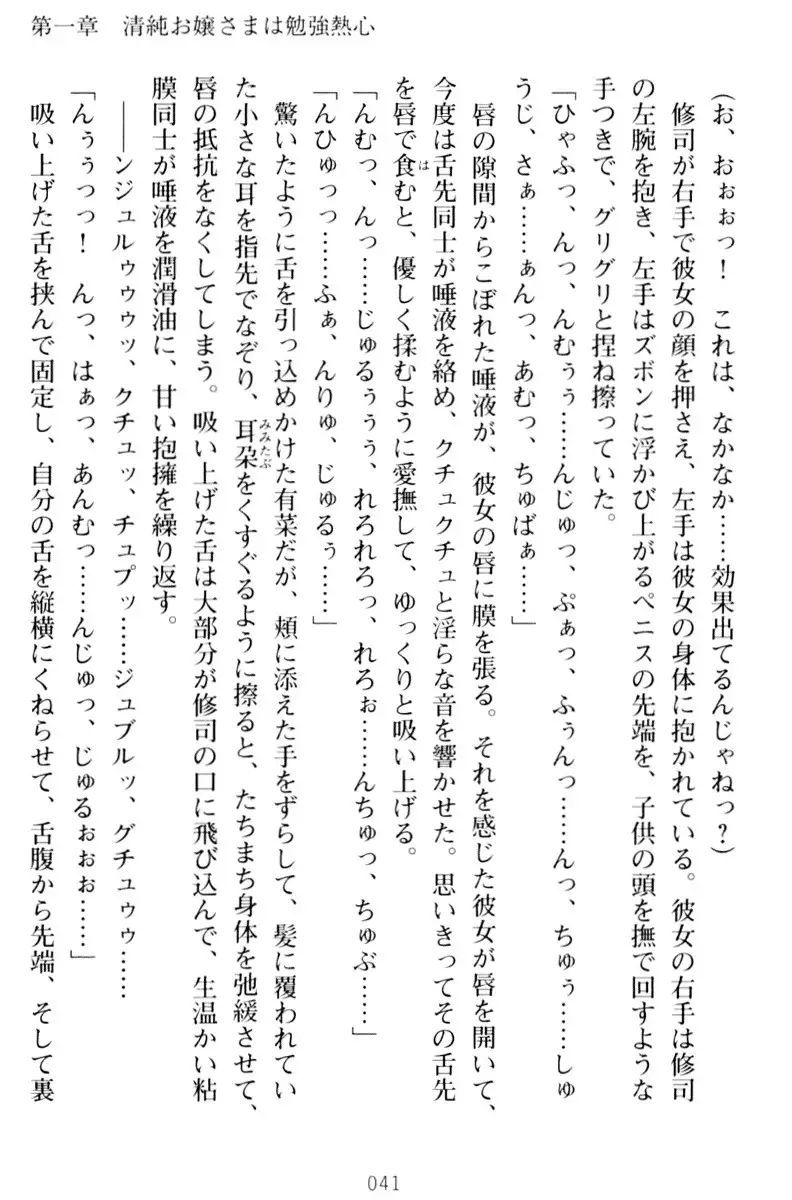 第一章　清純お嬢さまは勉強熱心
（お、おぉぉっ！　これは、なかなか……効果出てるんじゃねっ？）
　修司が右手で彼女の顔を押さえ、左手は彼女の身体に抱かれている。彼女の右手は修司
の左腕を抱き、左手はズボンに浮かび上がるペニスの先端を、子供の頭を撫で回すような
手つきで、グリグリと捏ね擦っていた。
「ひゃふっ、んっ、んむぅぅ……んじゅっ、ぷぁっ、ふぅんっ……んっ、ちゅぅ……しゅ
うじ、さぁ……ぁんっ、あむっ、ちゅばぁ……」
　唇の隙間からこぼれた唾液が、彼女の唇に膜を張る。それを感じた彼女が唇を開いて、
今度は舌先同士が唾液を絡め、クチュクチュと淫らな音を響かせた。思いきってその舌先
を唇で食むと、優しく揉むように愛撫して、ゆっくりと吸い上げる。
は
「んむっ、んっ……じゅるぅぅぅ、れろれろっ、れろぉ……んちゅっ、ちゅぶ……」
「んひゅっっ……ふぁ、んりゅ、じゅるぅ……」
　驚いたように舌を引っ込めかけた有菜だが、頬に添えた手をずらして、髪に覆われてい
た小さな耳を指先でなぞり、耳朶をくすぐるように擦ると、たちまち身体を弛緩させて、
みみたぶ
唇の抵抗をなくしてしまう。吸い上げた舌は大部分が修司の口に飛び込んで、生温かい粘
膜同士が唾液を潤滑油に、甘い抱擁を繰り返す。
　――ンジュルゥゥゥッ、クチュッ、チュプッ……ジュブルッ、グチュゥゥ……
「んぅぅっっ！　んっ、はぁっ、あんむっ……んじゅっ、じゅるぉぉぉ……」
　吸い上げた舌を挟んで固定し、自分の舌を縦横にくねらせて、舌腹から先端、そして裏
041